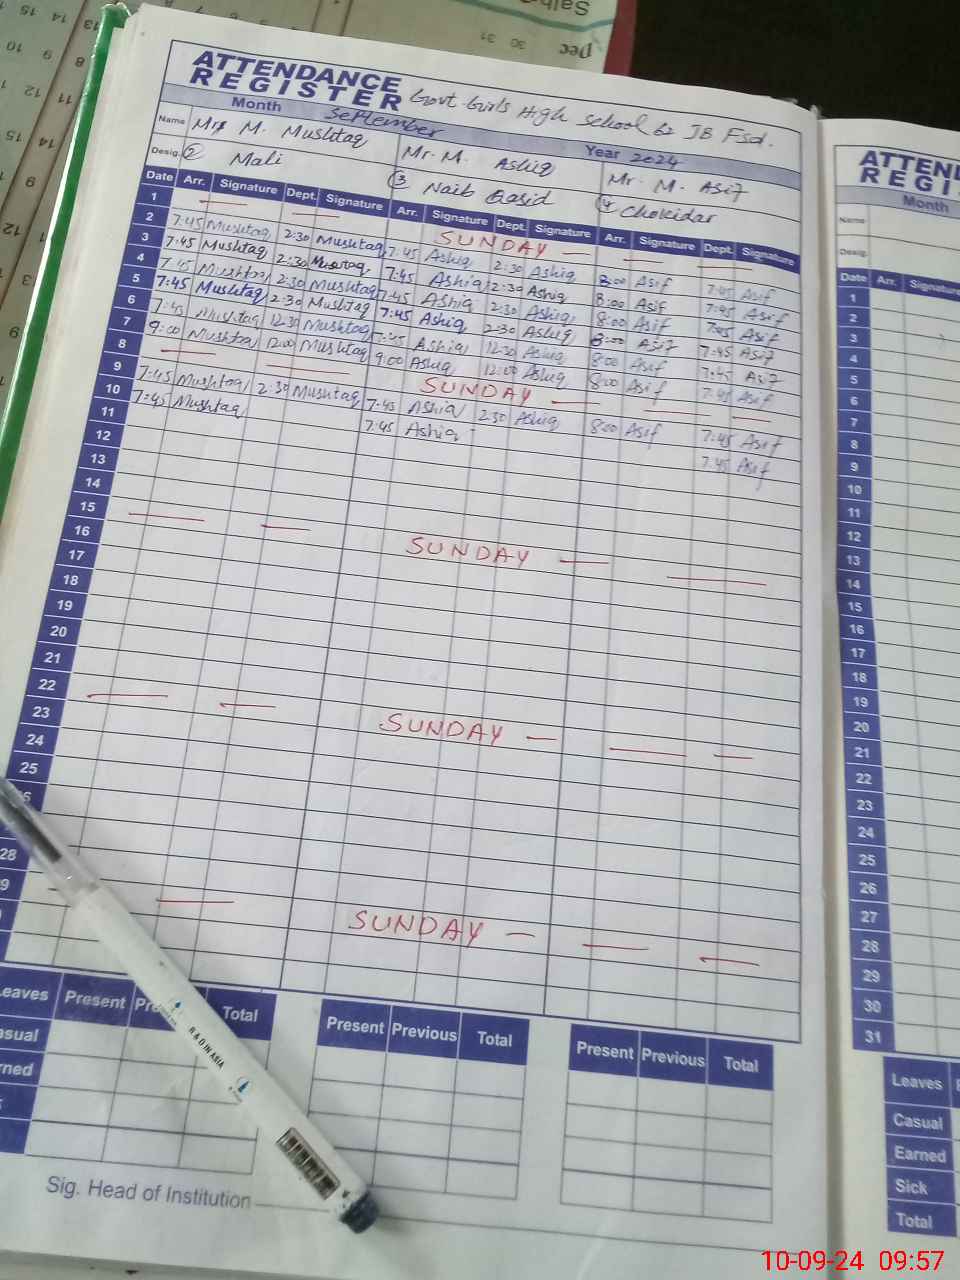 ATTENDANCE
REGISTER Govt Girls High School 62 JB Fsd.
Month September Year 2024
Name M. Mushtaq Mr. M. Ashiq Mr. M. Asif
Desig. ② Mali ③ Naib Qasid ④ Chokidar
Date Arr. Signature Dept. Signature Arr. Signature Dept. Signature Arr. Signature Dept. Signature
1 — — SUNDAY — — —
2 7:45 Mushtaq 2:30 Mushtaq 7:45 Ashiq 2:30 Ashiq 8:00 Asif 7:45 Asif
3 7:45 Mushtaq 2:30 Mushtaq 7:45 Ashiq 2:30 Ashiq 8:00 Asif 7:45 Asif
4 7:45 Mushtaq 2:30 Mushtaq 7:45 Ashiq 2:30 Ashiq 8:00 Asif 7:45 Asif
5 7:45 Mushtaq 2:30 Mushtaq 7:45 Ashiq 2:30 Ashiq 8:00 Asif 7:45 Asif
6 7:45 Mushtaq 12:30 Mushtaq 7:45 Ashiq 12:30 Ashiq 8:00 Asif 7:45 Asif
7 9:00 Mushtaq 12:00 Mushtaq 9:00 Ashiq 12:00 Ashiq 8:00 Asif 7:45 Asif
8 — — SUNDAY — — —
9 7:45 Mushtaq 2:30 Mushtaq 7:45 Ashiq 2:30 Ashiq 8:00 Asif 7:45 Asif
10 7:45 Mushtaq 7:45 Ashiq 7:45 Asif
11
12
13
14
15 — — SUNDAY — —
16
17
18
19
20
21
22 — — SUNDAY — — —
23
24
25
28
SUNDAY — — —
Leaves Present Total
Present Previous Total
Present Previous Total
Sig. Head of Institution
R & D IN ASIA
ATTEN
REGI
Month
Name
Desig.
Date Arr. Signature
1
2
3
4
5
6
7
8
9
10
11
12
13
14
15
16
17
18
19
20
21
22
23
24
25
26
27
28
29
30
31
Leaves
Casual
Earned
Sick
Total
Dec
30 31
10-09-24 09:57